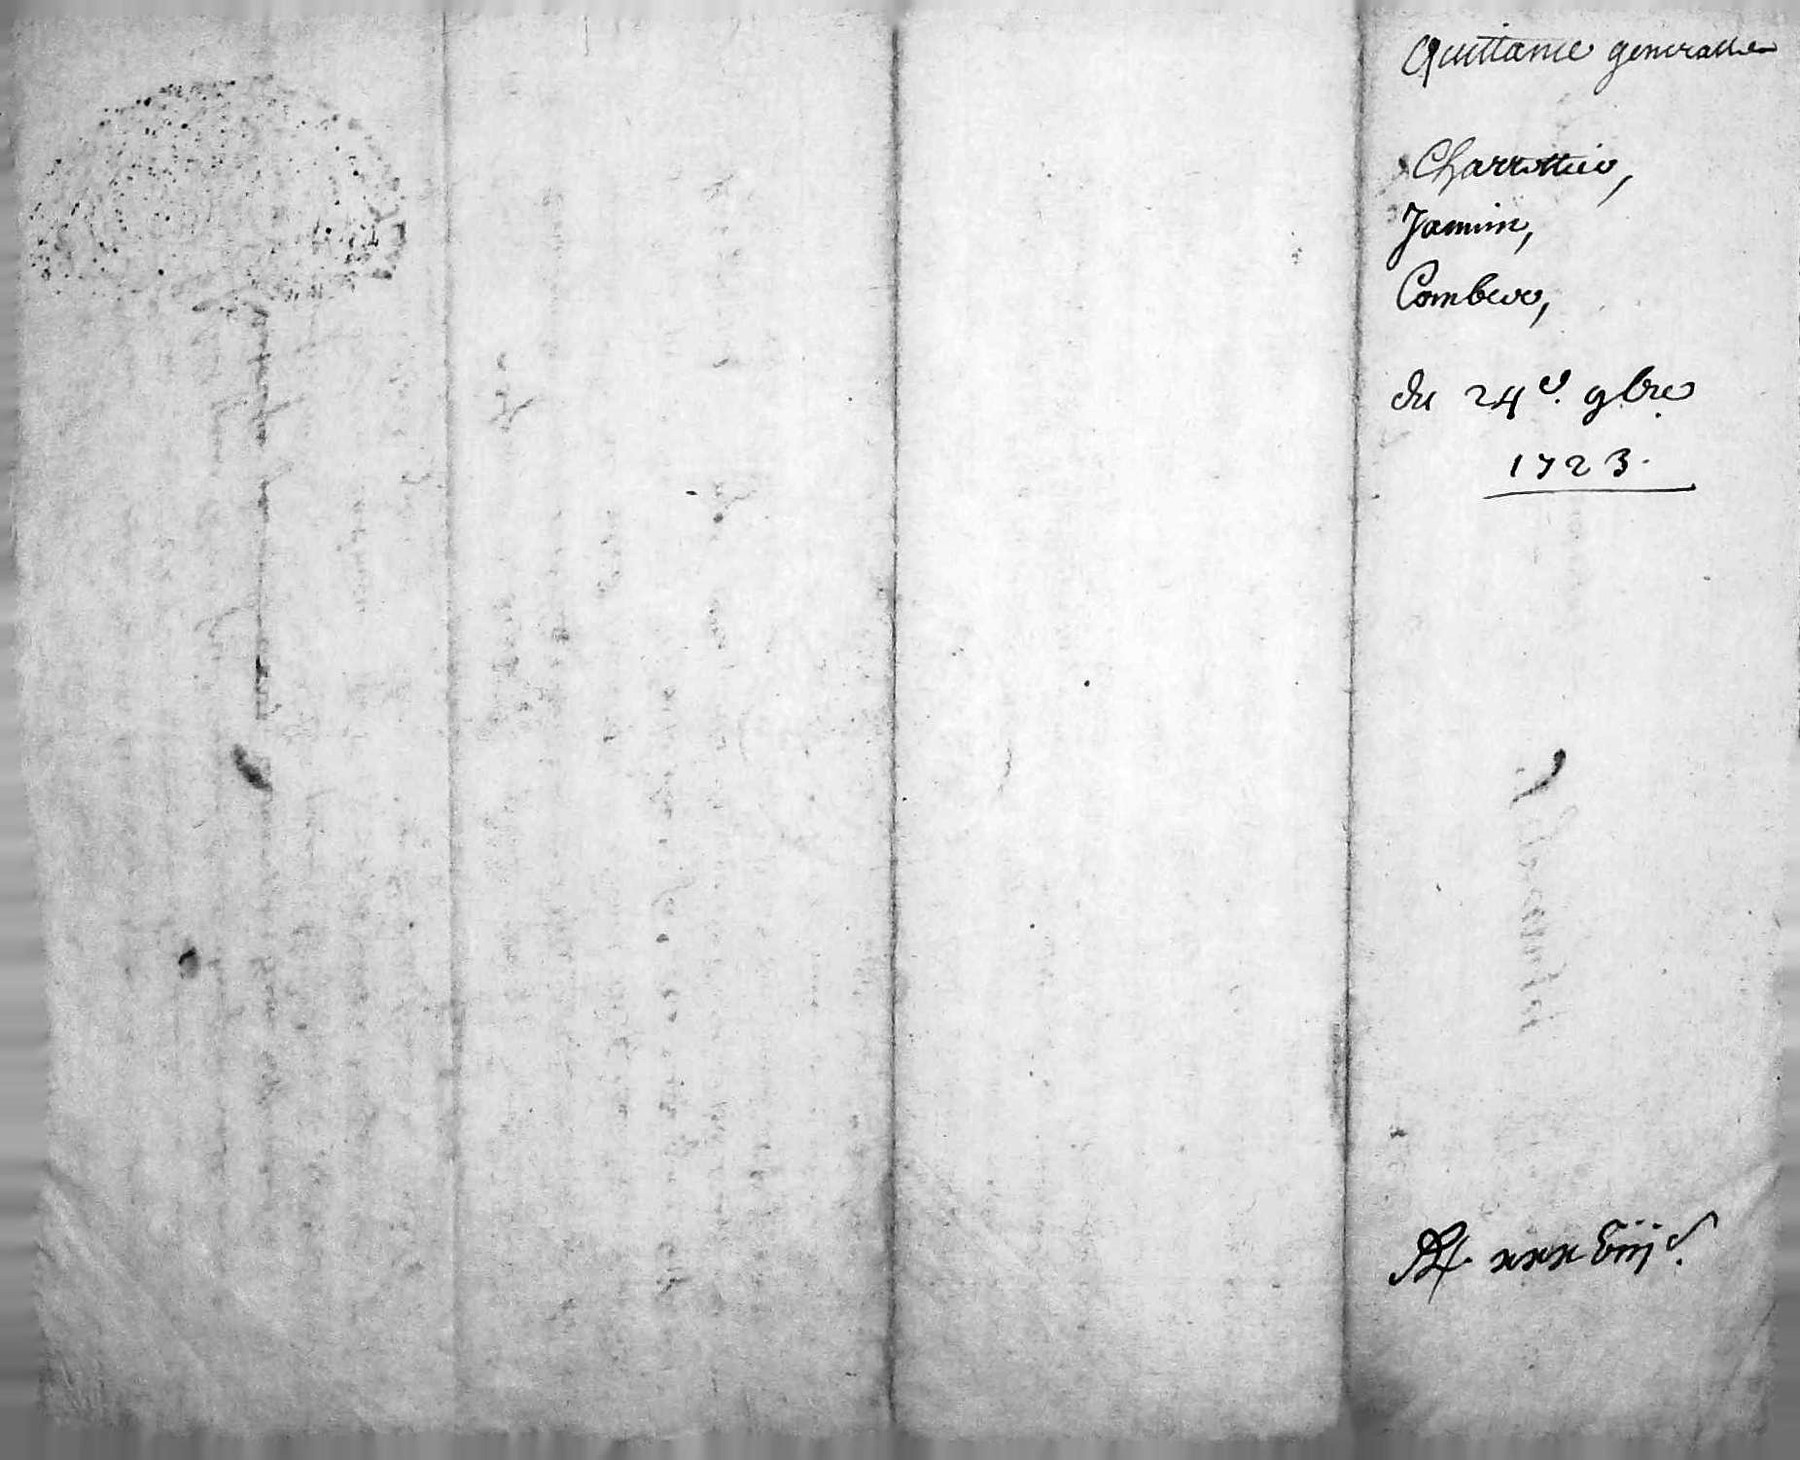 Quittance generalle
Charrottier,
Jamin,
Combior,
du 24e. 9bre.
1723.
xxx viij s.